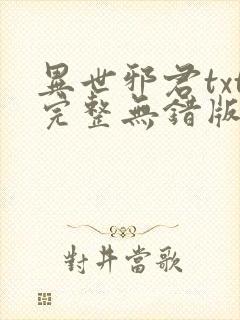 異世邪君txt
完整無錯版
對井當歌